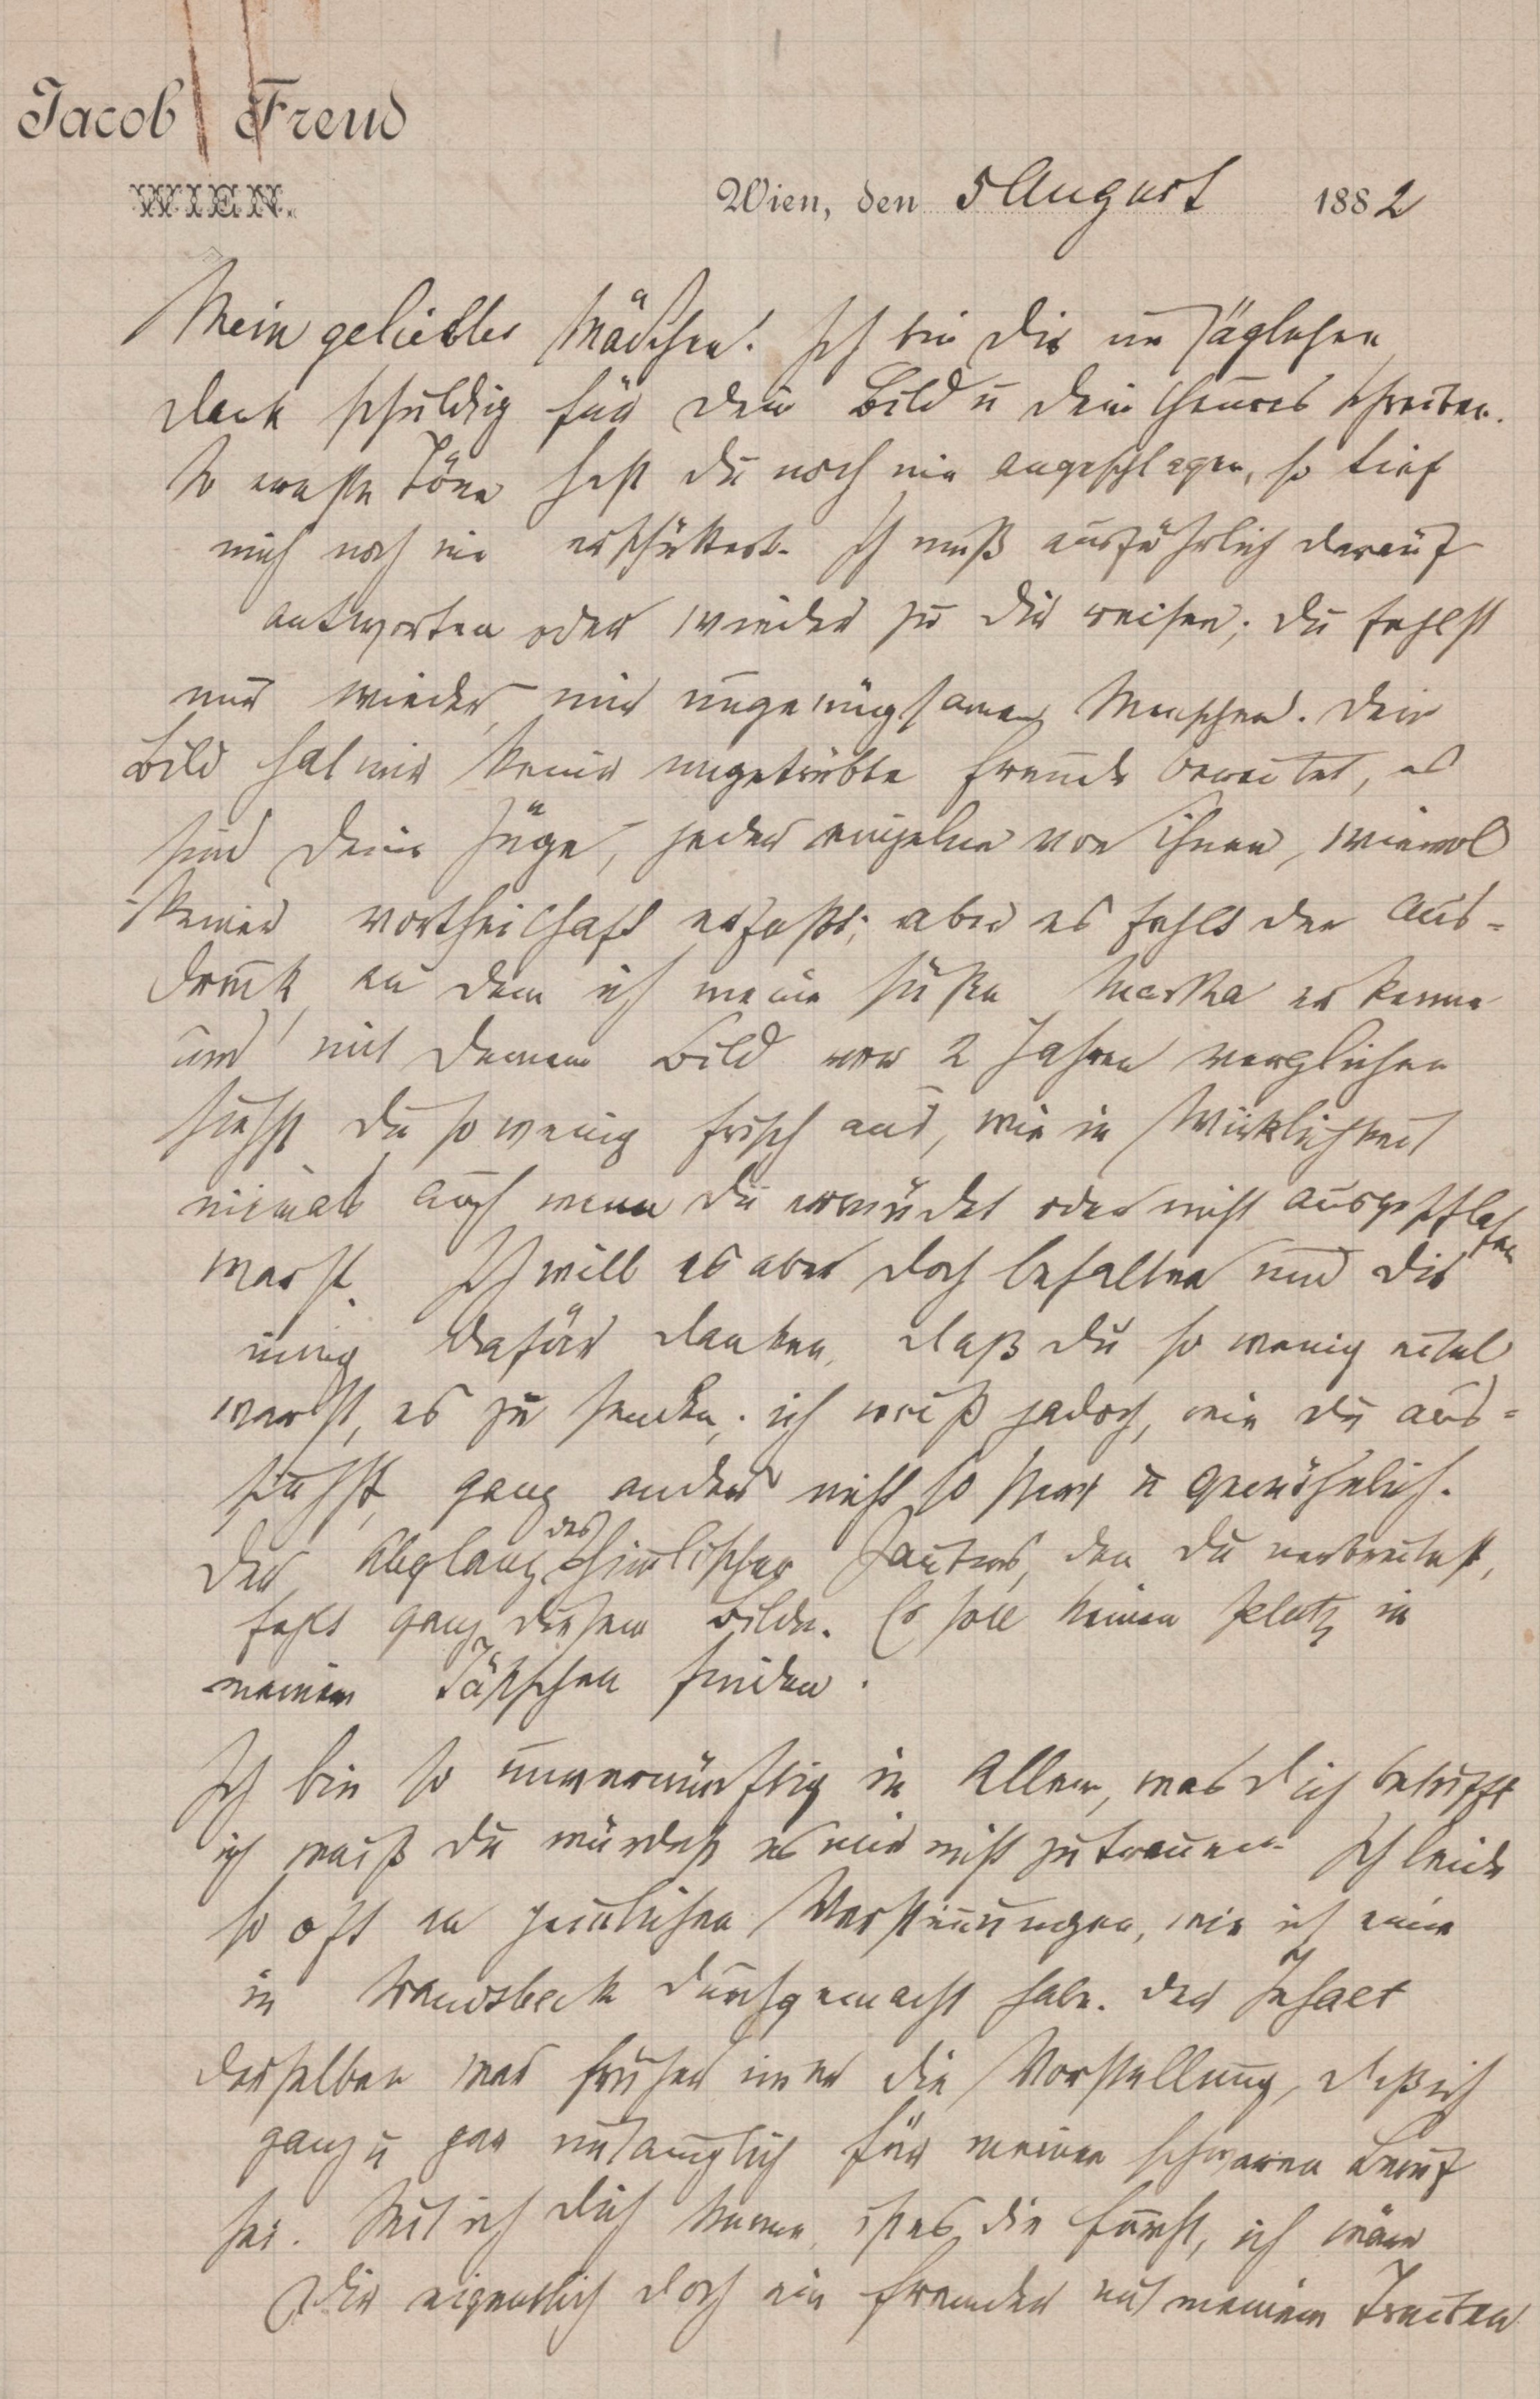 Jacob Freud
WIEN.
Wien, den 5 August 1882
Mein geliebtes Mädchen! Ich bin Dir unsäglichen
Dank schuldig für Dein Bild u Dein theures Schreiben.
So ernste Töne hast Du noch nie angeschlagen, so tief
mich noch nie erschüttert. Ich muß ausführlich darauf
antworten oder wieder zu Dir reisen; Du fehlst
mir wieder, mir ungenügsamen Menschen. Dein
Bild hat mir keine ungetrübte Freude bereitet, es
sind Deine Züge, jeder einzelne von ihnen, wiewol
keiner vortheilhaft erfaßt; aber es fehlt der Aus-
druck, an dem ich meine süße Martha erkenne
und mit Deinem Bild vor 2 Jahren verglichen
siehst Du so wenig frisch aus, wie in Wirklichkeit
niemals auch wenn Du ermüdet oder nicht ausgeschlafen
warst. Ich will es aber doch behalten und Dir
innig dafür danken, daß Du so wenig eitel
warst, es zu senden; ich weiß jedoch, wie Du aus-
siehst, ganz anders nicht so starr u gewöhnlich.
Der Abglanz des himlischen Zaubers, den Du verbreitest,
fehlt ganz diesem Bilde. Es soll keinen Platz in
meinem Täschchen finden.
Ich bin so unvernünftig in Allem, was Dich betrifft
ich weiß Du würdest es mir nicht zutrauen. Ich leide
so oft an peinlichen Verstimungen, wie ich eine
in Wandsbeck durchgemacht habe. Der Inhalt
derselben war früher imer die Vorstellung, daß ich
ganz u gar untauglich für meinen schweren Beruf
sei. Seit ich Dich kenne, ist es die Furcht, ich wäre
Dir eigentlich doch ein Fremder mit meinem Treiben